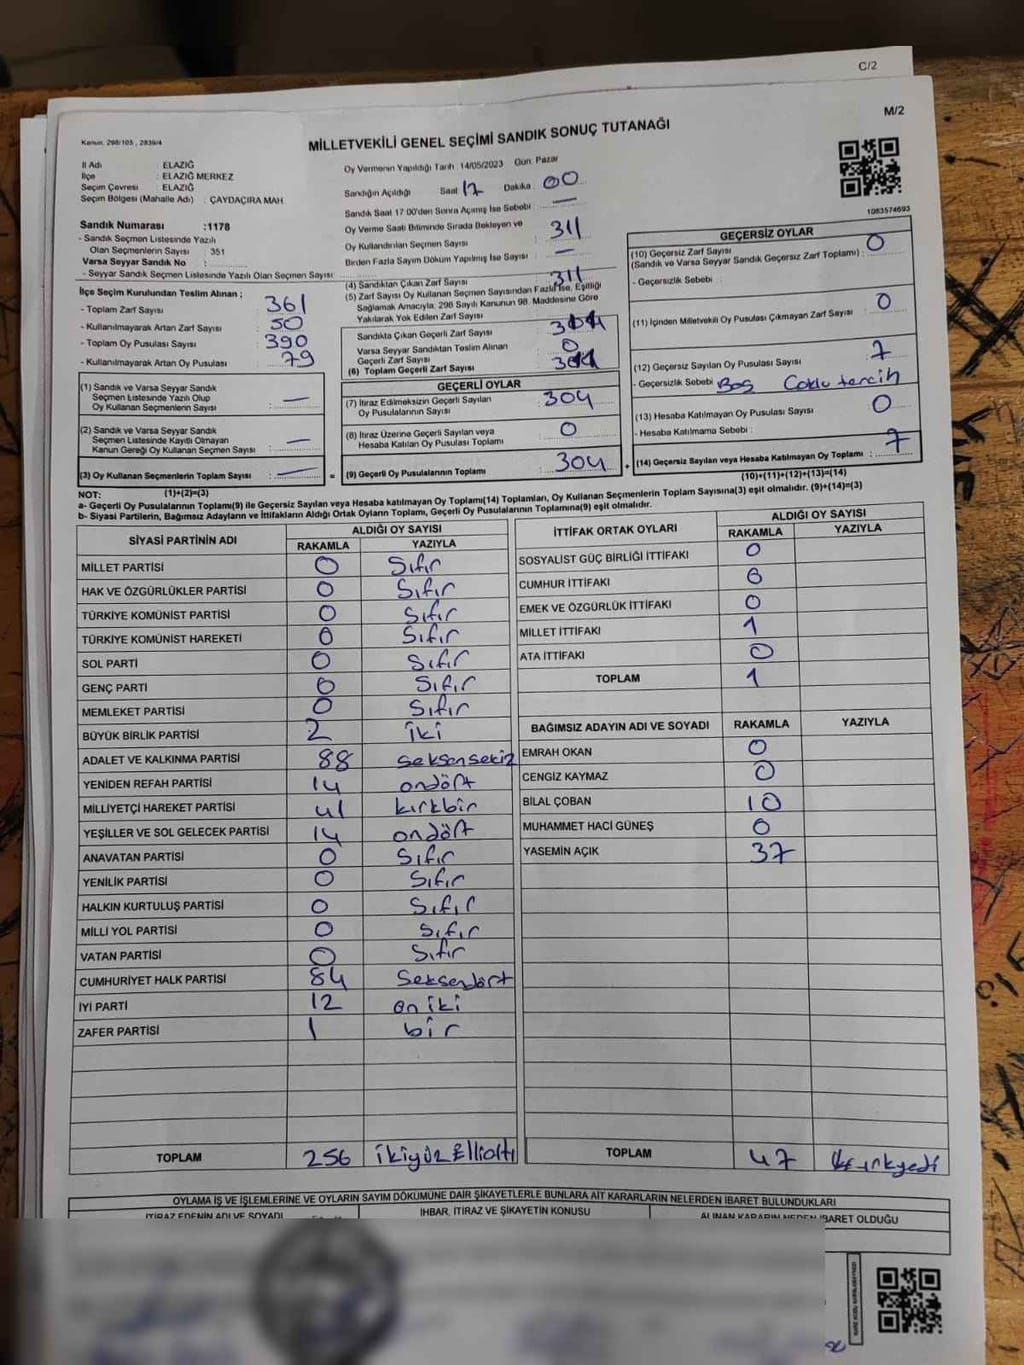 C/2
M/2
Kanun. 298/105 , 2839/4
MİLLETVEKİLİ GENEL SEÇİMİ SANDIK SONUÇ TUTANAĞI
İl Adı : ELAZIĞ
İlçe : ELAZIĞ MERKEZ
Seçim Çevresi : ELAZIĞ
Seçim Bölgesi (Mahalle Adı) : ÇAYDAÇIRA MAH
Sandık Numarası :1178
- Sandık Seçmen Listesinde Yazılı
Olan Seçmenlerin Sayısı : 351
Varsa Seyyar Sandık No :
- Seyyar Sandık Seçmen Listesinde Yazılı Olan Seçmen Sayısı:
Oy Vermenin Yapıldığı Tarih :14/05/2023 Gün: Pazar
Sandığın Açıldığı Saat 17 Dakika : 00
Sandık Saat 17:00'den Sonra Açılmış İse Sebebi : —
Oy Verme Saati Bitiminde Sırada Bekleyen ve
Oy Kullandırılan Seçmen Sayısı 311
Birden Fazla Sayım Döküm Yapılmış İse Sayısı : —
1083574693
İlçe Seçim Kurulundan Teslim Alınan ;
- Toplam Zarf Sayısı : 361
- Kullanılmayarak Artan Zarf Sayısı : 50
- Toplam Oy Pusulası Sayısı : 390
- Kullanılmayarak Artan Oy Pusulası : 79
(1) Sandık ve Varsa Seyyar Sandık
Seçmen Listesinde Yazılı Olup
Oy Kullanan Seçmenlerin Sayısı : —
(2) Sandık ve Varsa Seyyar Sandık
Seçmen Listesinde Kayıtlı Olmayan
Kanun Gereği Oy Kullanan Seçmen Sayısı : —
(3) Oy Kullanan Seçmenlerin Toplam Sayısı : —
(1)+(2)=(3)
(4) Sandıktan Çıkan Zarf Sayısı : 311
(5) Zarf Sayısı Oy Kullanan Seçmen Sayısından Fazla İse, Eşitliği
Sağlamak Amacıyla, 298 Sayılı Kanunun 98. Maddesine Göre
Yakılarak Yok Edilen Zarf Sayısı :
Sandıkta Çıkan Geçerli Zarf Sayısı :
Varsa Seyyar Sandıktan Teslim Alınan
Geçerli Zarf Sayısı : 0
(6) Toplam Geçerli Zarf Sayısı :
GEÇERLİ OYLAR
(7) İtiraz Edilmeksizin Geçerli Sayılan
Oy Pusulalarının Sayısı : 304
(8) İtiraz Üzerine Geçerli Sayılan veya
Hesaba Katılan Oy Pusulası Toplamı : 0
= (9) Geçerli Oy Pusulalarının Toplamı : 304
GEÇERSİZ OYLAR
(10) Geçersiz Zarf Sayısı
(Sandık ve Varsa Seyyar Sandık Geçersiz Zarf Toplamı) : 0
- Geçersizlik Sebebi :
(11) İçinden Milletvekili Oy Pusulası Çıkmayan Zarf Sayısı : 0
(12) Geçersiz Sayılan Oy Pusulası Sayısı : 7
- Geçersizlik Sebebi : Boş Çoklu tercih
(13) Hesaba Katılmayan Oy Pusulası Sayısı : 0
- Hesaba Katılmama Sebebi :
+ (14) Geçersiz Sayılan veya Hesaba Katılmayan Oy Toplamı : 7
(10)+(11)+(12)+(13)=(14)
NOT:
a- Geçerli Oy Pusulalarının Toplamı(9) ile Geçersiz Sayılan veya Hesaba katılmayan Oy Toplamı(14) Toplamları, Oy Kullanan Seçmenlerin Toplam Sayısına(3) eşit olmalıdır. (9)+(14)=(3)
b- Siyasi Partilerin, Bağımsız Adayların ve İttifakların Aldığı Ortak Oyların Toplamı, Geçerli Oy Pusulalarının Toplamına(9) eşit olmalıdır.
SİYASİ PARTİNİN ADI ALDIĞI OY SAYISI
RAKAMLA YAZIYLA
MİLLET PARTİSİ 0 Sıfır
HAK VE ÖZGÜRLÜKLER PARTİSİ 0 Sıfır
TÜRKİYE KOMÜNİST PARTİSİ 0 Sıfır
TÜRKİYE KOMÜNİST HAREKETİ 0 Sıfır
SOL PARTİ 0 Sıfır
GENÇ PARTİ 0 Sıfır
MEMLEKET PARTİSİ 0 Sıfır
BÜYÜK BİRLİK PARTİSİ 2 iki
ADALET VE KALKINMA PARTİSİ 88 seksensekiz
YENİDEN REFAH PARTİSİ 14 ondört
MİLLİYETÇİ HAREKET PARTİSİ 41 kırkbir
YEŞİLLER VE SOL GELECEK PARTİSİ 14 ondört
ANAVATAN PARTİSİ 0 Sıfır
YENİLİK PARTİSİ 0 Sıfır
HALKIN KURTULUŞ PARTİSİ 0 Sıfır
MİLLİ YOL PARTİSİ 0 Sıfır
VATAN PARTİSİ 0 Sıfır
CUMHURİYET HALK PARTİSİ 84 Seksendört
İYİ PARTİ 12 on iki
ZAFER PARTİSİ 1 bir
TOPLAM 256 ikiyüz Ellialtı
İTTİFAK ORTAK OYLARI ALDIĞI OY SAYISI
RAKAMLA YAZIYLA
SOSYALİST GÜÇ BİRLİĞİ İTTİFAKI 0
CUMHUR İTTİFAKI 0
EMEK VE ÖZGÜRLÜK İTTİFAKI 0
MİLLET İTTİFAKI 1
ATA İTTİFAKI 0
TOPLAM 1
BAĞIMSIZ ADAYIN ADI VE SOYADI RAKAMLA YAZIYLA
EMRAH OKAN 0
CENGİZ KAYMAZ 0
BİLAL ÇOBAN 10
MUHAMMET HACİ GÜNEŞ 0
YASEMİN AÇIK 37
TOPLAM 47
OYLAMA İŞ VE İŞLEMLERİNE VE OYLARIN SAYIM DÖKÜMÜNE DAİR ŞİKAYETLERLE BUNLARA AİT KARARLARIN NELERDEN İBARET BULUNDUKLARI
İTİRAZ EDENİN ADI VE SOYADI İHBAR, İTİRAZ VE ŞİKAYETİN KONUSU ALINAN KARARIN NEDEN İBARET OLDUĞU